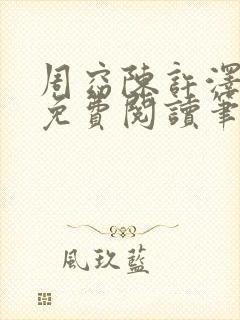 周窈陳許澤
免費閱讀筆
風玖藍